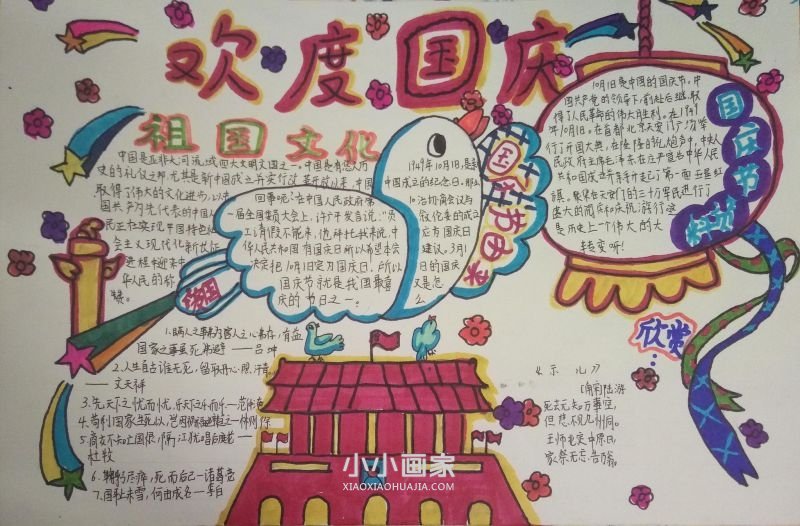 欢度国庆
祖国文化
中国是亚非大河流域四大文明古国之一。中国是有悠久历
史的礼仪之邦,尤其是新中国成立并实行改革开放以来,中国
取得了伟大的文化进步,以
国共产党先代表的中国人
民正在实现中国特色
会主义现代化
进程中迎来中
华人民的称
赞。
国庆节由来
1949年10月1日,是新
中国成立的纪念日。那么
回事呢?在中国人民政府第
一届全国委员大会上,许广平发言说:“
工请假不能来,他
华人民共和国应有国庆日,所以希望本会
决定把10月1日定为国庆日。所以
国庆节就是我国最喜
庆的节日之一。
10
建议。
日的国庆
又是怎
么
国庆节
资料
10月1日是中国的国庆节。中
国共产党的领导下,前赴后继,取
得了人民革命的伟大胜利。在1949
年10月1日,在首都北京天安门广场举
行了开国大典,在隆隆的礼炮声中,中央人
民政府主席毛泽东在庄严宣告中华人民
共和国成立并亲手升起了第一面五星红
旗。聚集在天安门的三十万军民进行了
盛大的阅兵和庆祝游行。这
是历史上一个伟大的大
转变听!
祖国
欣赏
1.
国家之事虽死 ——吕坤
2.人生自古谁无死,留取丹心照汗青。
——文天祥
3.先天下之忧而忧,后天下之乐而乐—范仲淹
4.苟利国家生死以,岂因祸福避趋之—林则徐
5.商女不知亡国恨,隔江犹唱后庭花——
杜牧
6.鞠躬尽瘁,死而后已—诸葛亮
7.国耻未雪,何由成名—李白
《示儿》
陆游
死去元知万事空,
但悲不见九州同。
王师北定中原日,
家祭无忘告乃翁。
小小画家
XIAOXIAOHUAJIA.COM